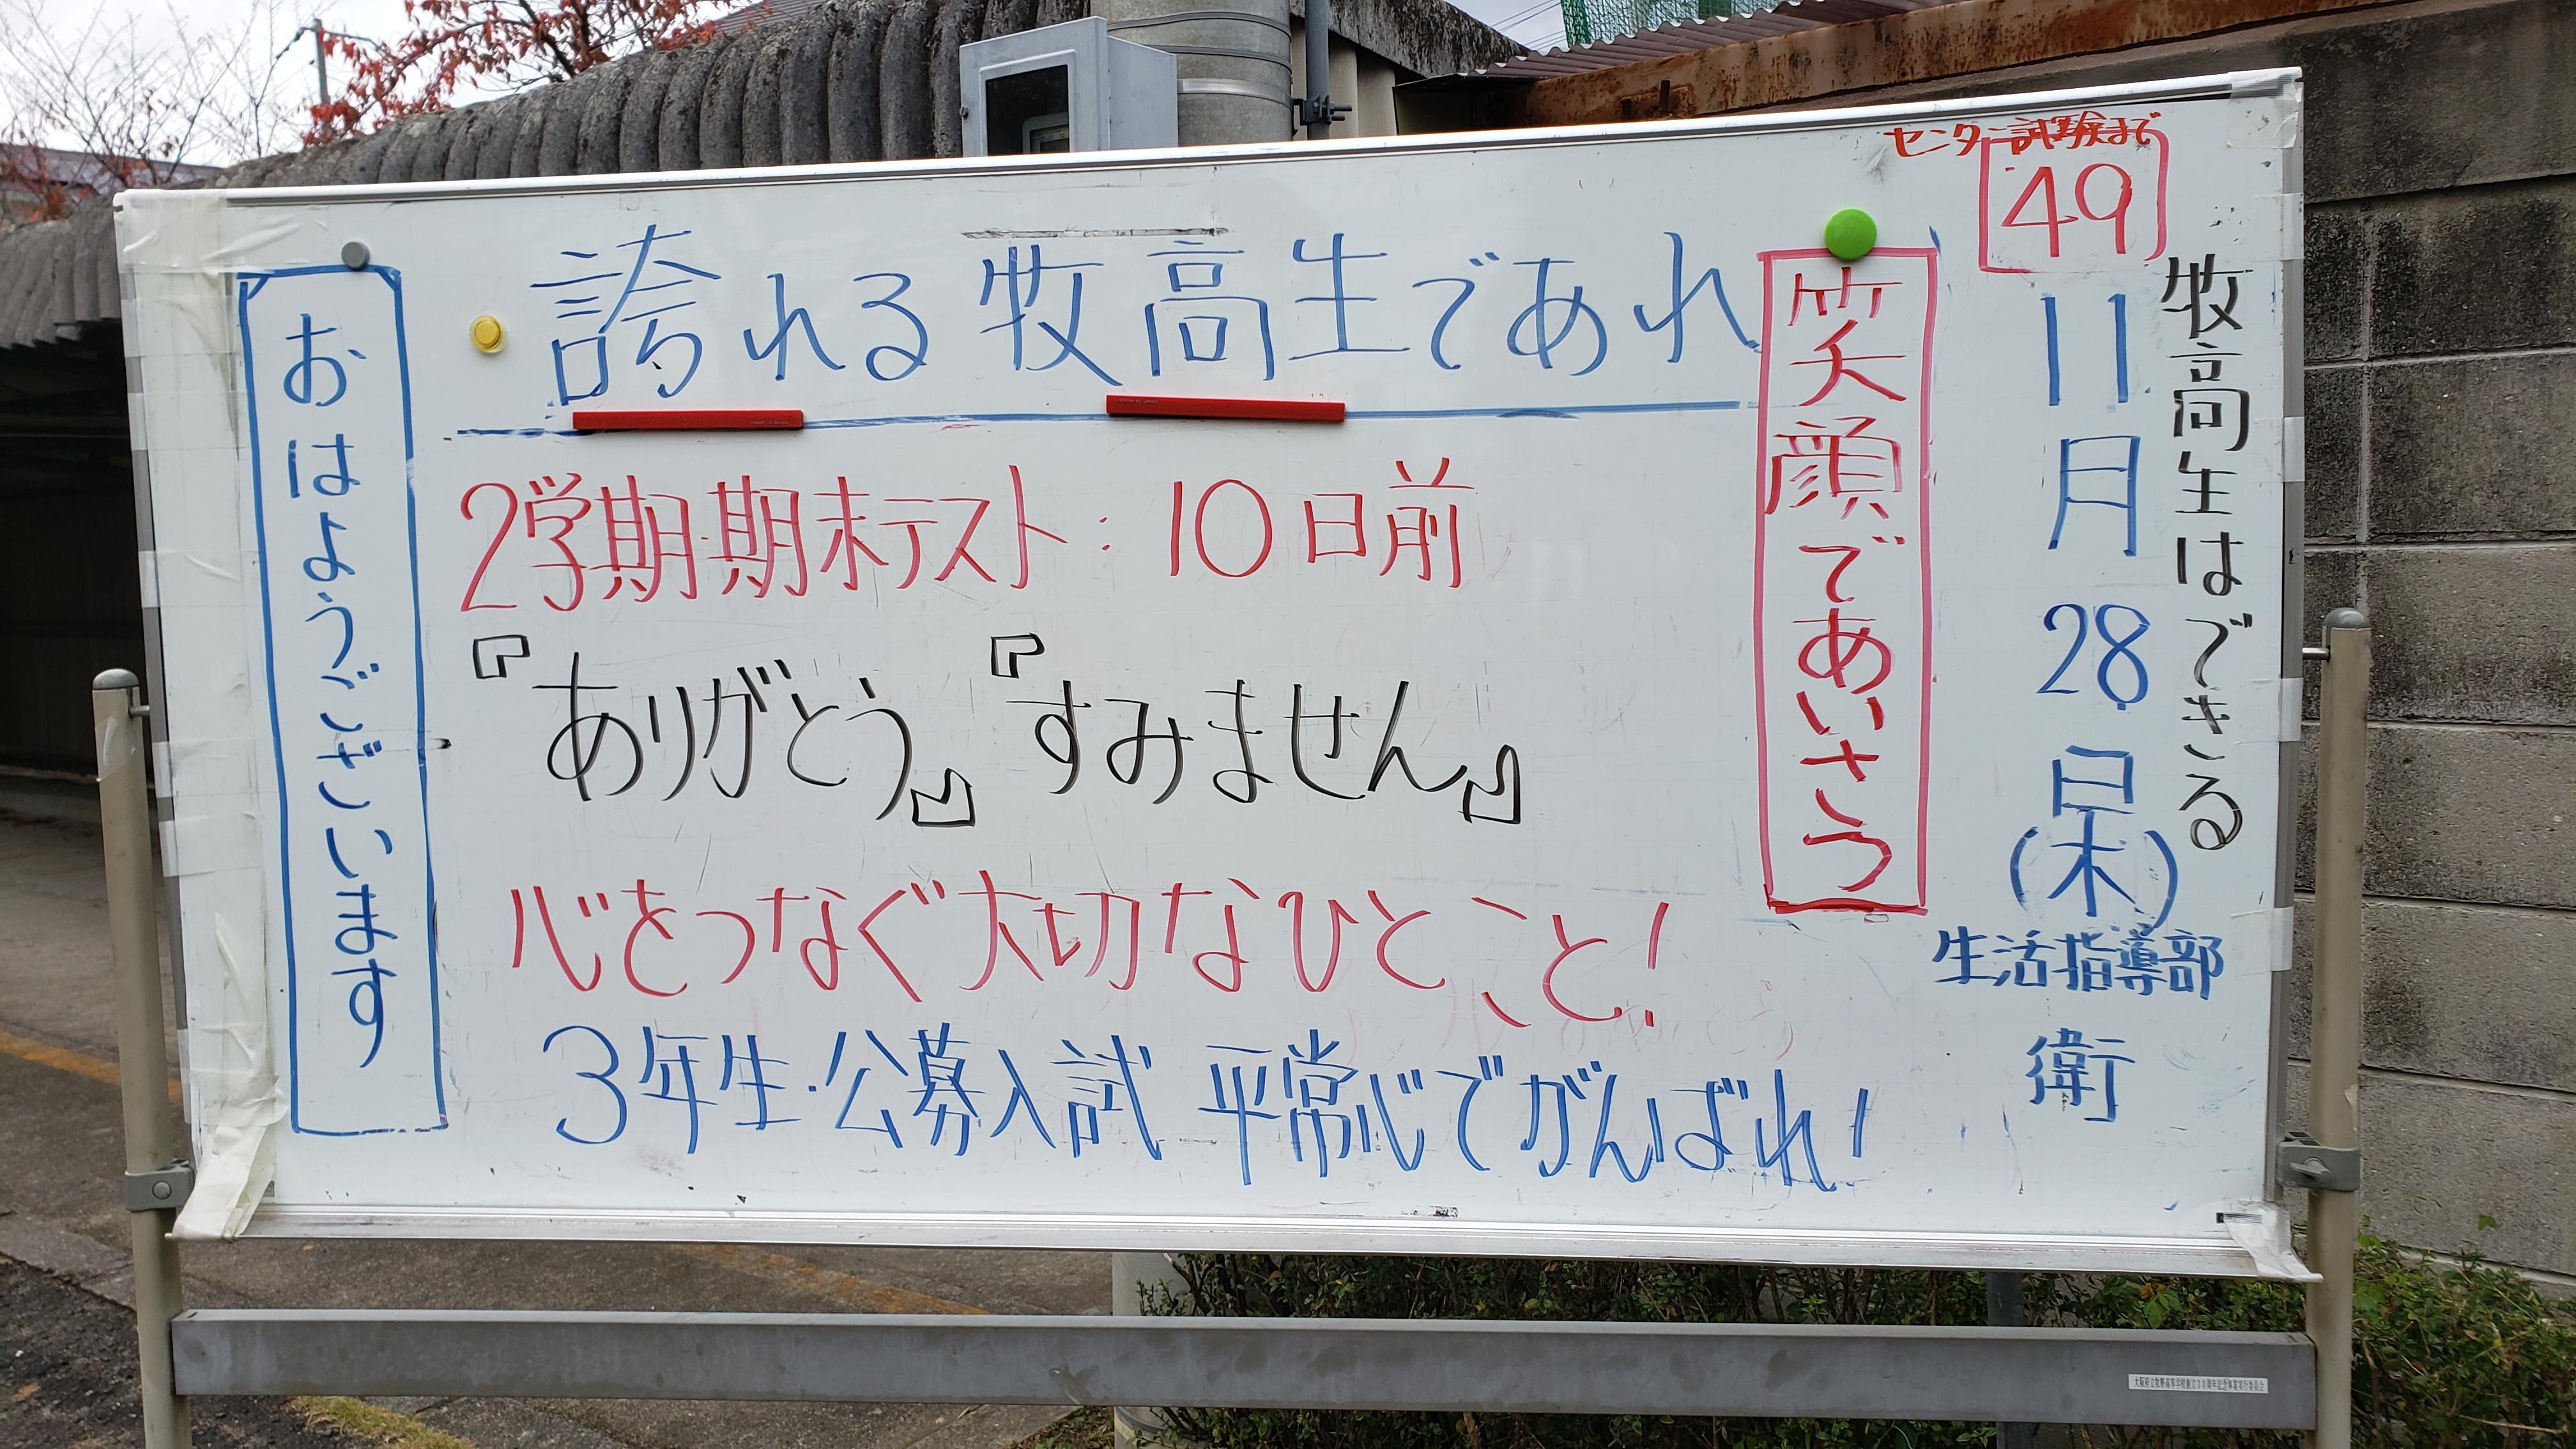 牧高生はできる
センター試験まで
49
11月28日(木)
生活指導部
衛
笑顔であいさつ
誇れる牧高生であれ
2学期・期末テスト:10日前
『ありがとう』『すみません』
心をつなぐ大切なひとこと!
3年生・公募入試 平常心でがんばれ!
おはようございます